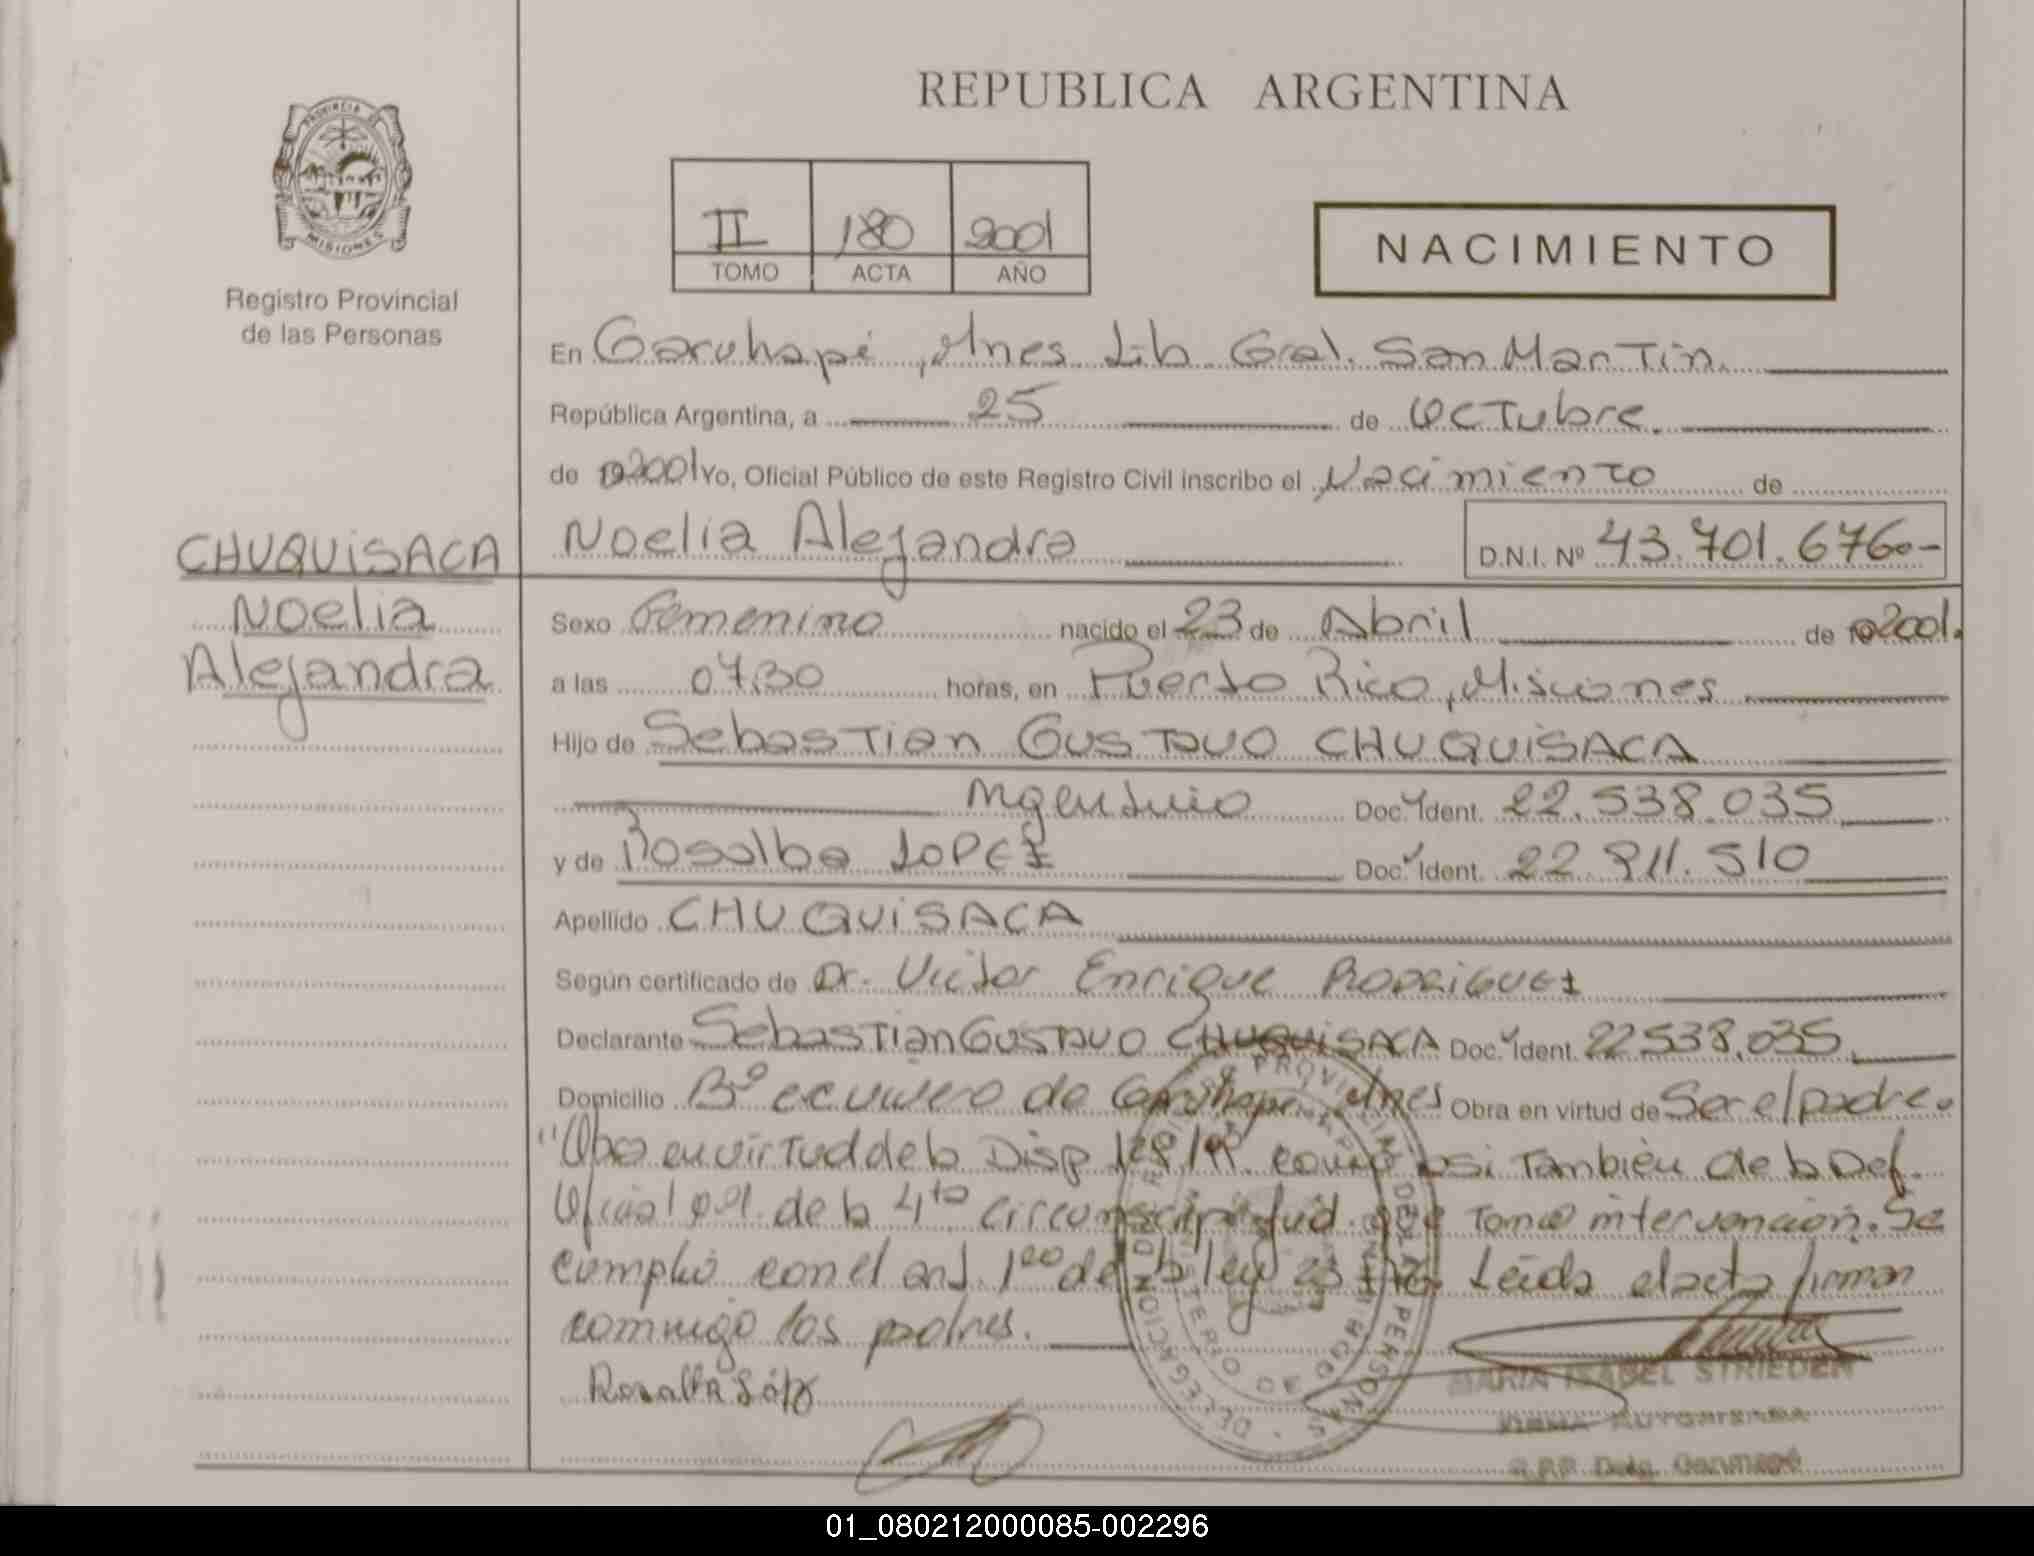 REPUBLICA ARGENTINA
PROVINCIA DE
MISIONES
Registro Provincial
de las Personas
II 180 2001
TOMO ACTA AÑO
NACIMIENTO
En Garuhapé, Mnes Lib. Gral. San Martin.
República Argentina, a 25 de Octubre.
de 19 2001 Yo, Oficial Público de este Registro Civil inscribo el Nacimiento de
CHUQUISACA
Noelia
Alejandra
Noelia Alejandra D.N.I. Nº 43.701.676.-
Sexo Femenino nacido el 23 de Abril de 19 2001.
a las 07,30 horas, en Puerto Rico, Misiones
Hijo de Sebastian Gustavo CHUQUISACA
Argentino Doc. Ident. 22.538.035
y de Rosalba LOPEZ Doc. Ident. 22.911.510
Apellido CHUQUISACA
Según certificado de Dr. Victor Enrique RODRIGUEZ
Declarante Sebastian Gustavo CHUQUISACA Doc. Ident. 22538.035
Domicilio Bº de Garuhapé Mnes Obra en virtud de Ser el padre.
"Obra en virtud de la Disp 128/ como asi Tambien de la Def.
Oficial de la 4ta que Tomo intervencion. Se
cumplio con el art. 1ro de la ley 23 Leida el acta firman
conmigo los padres.
Rosalba López
MARIA ISABEL STRIEDER
FIRMA AUTORISADA
R.P.P. Deleg. Garuhapé
01_080212000085-002296